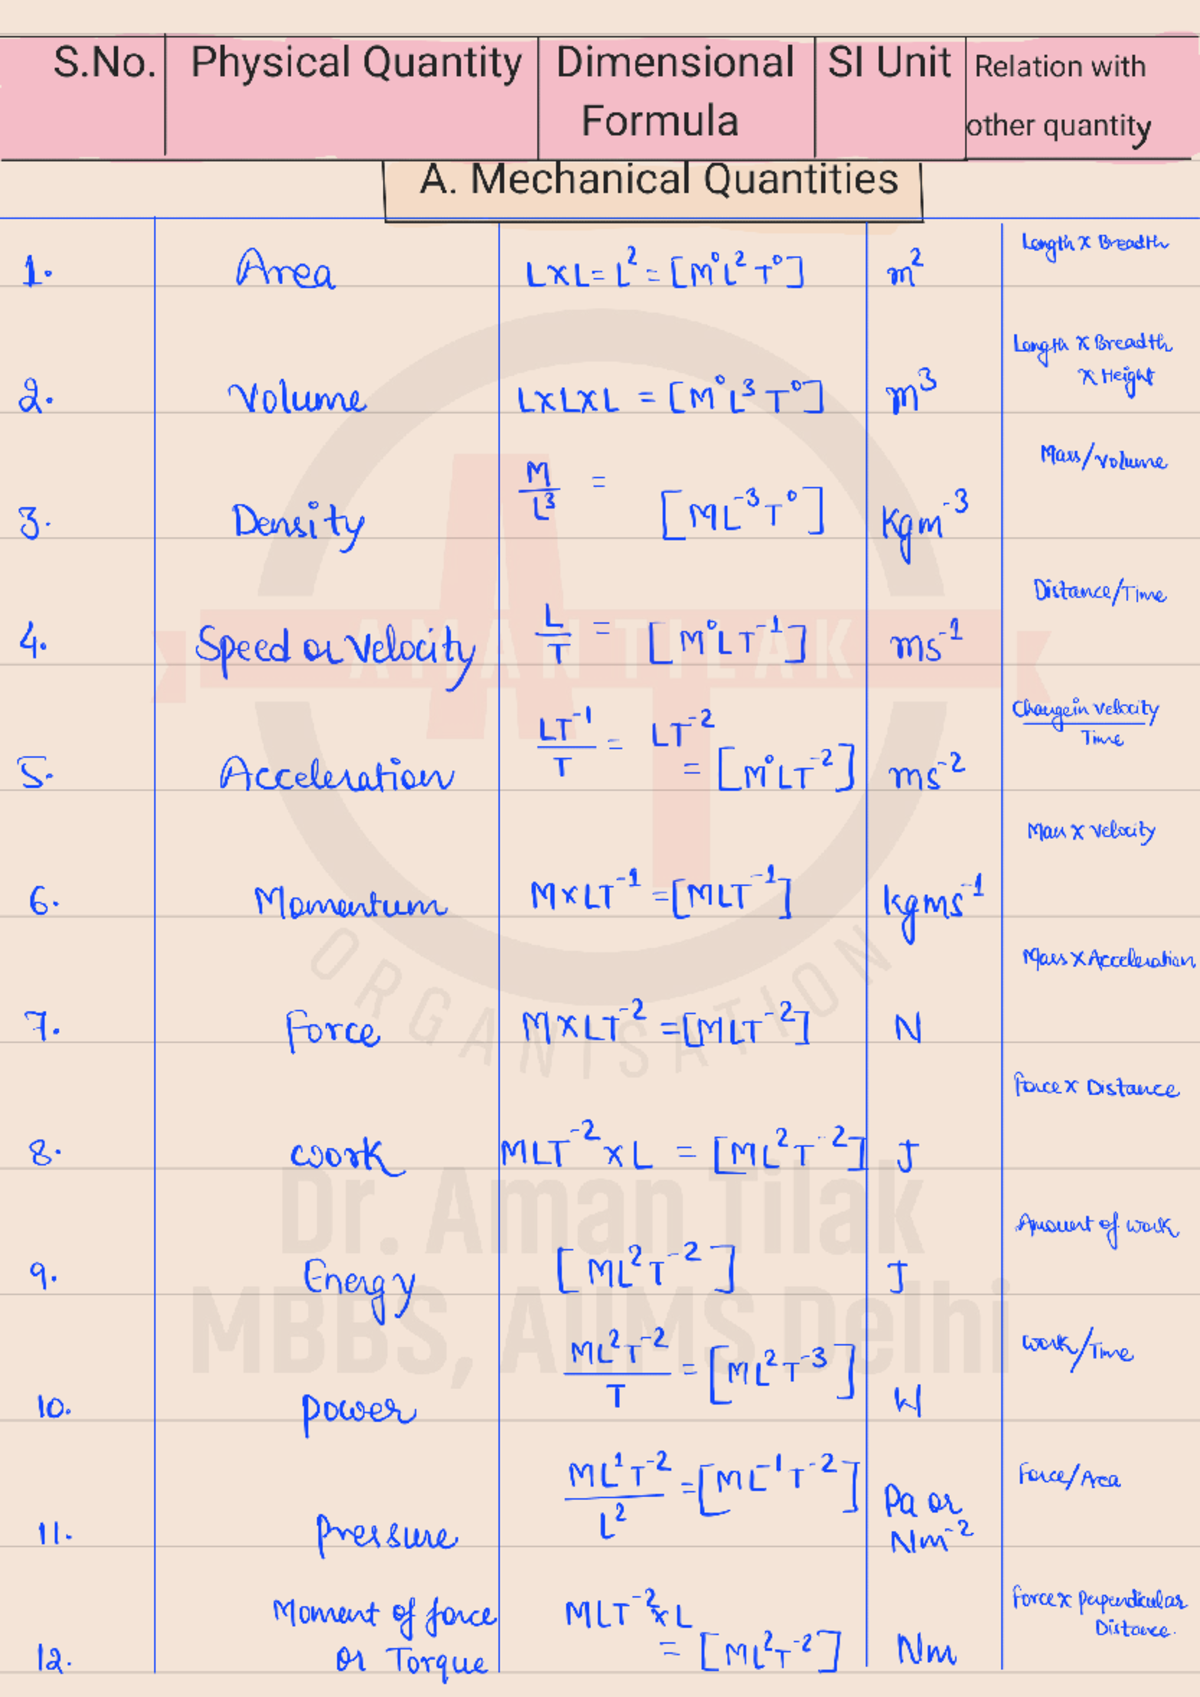 S.No. Physical Quantity Dimensional Formula SI Unit Relation with other quantity
A. Mechanical Quantities
1. Area L×L = L² = [M⁰L²T⁰] m² Length × Breadth
2. Volume L×L×L = [M⁰L³T⁰] m³ Length × Breadth × Height
3. Density M/L³ = [ML⁻³T⁰] Kgm⁻³ Mass/Volume
4. Speed or Velocity L/T = [M⁰LT⁻¹] ms⁻¹ Distance/Time
5. Acceleration LT⁻¹/T = LT⁻² = [M⁰LT⁻²] ms⁻² Change in Velocity/Time
6. Momentum M×LT⁻¹ = [MLT⁻¹] kgms⁻¹ Mass × Velocity
7. Force M×LT⁻² = [MLT⁻²] N Mass × Acceleration
8. Work MLT⁻²×L = [ML²T⁻²] J Force × Distance
9. Energy [ML²T⁻²] J Amount of work
10. Power ML²T⁻²/T = [ML²T⁻³] W Work/Time
11. Pressure ML¹T⁻²/L² = [ML⁻¹T⁻²] Pa or Nm⁻² Force/Area
12. Moment of force or Torque MLT⁻²×L = [ML²T⁻²] Nm Force × Perpendicular Distance.
AMAN TILAK
ORGANISATION
Dr. Aman Tilak
MBBS, AIIMS Delhi